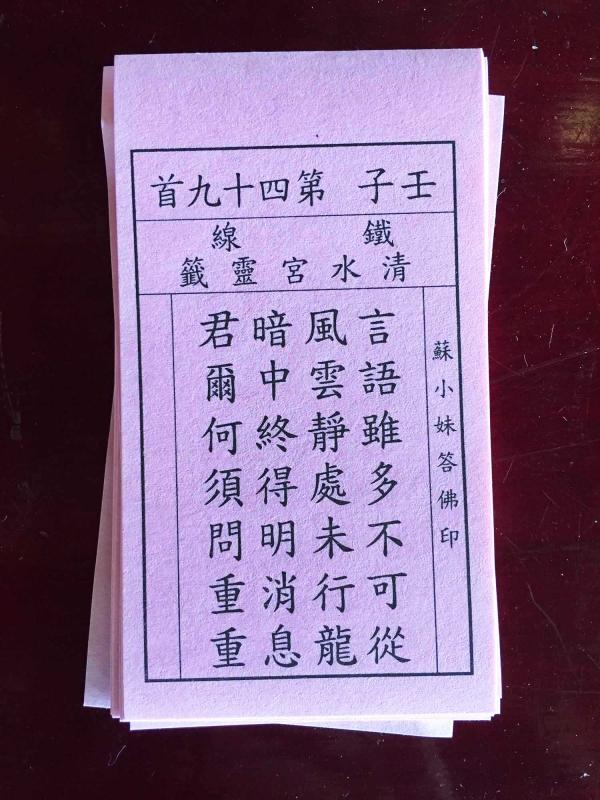 壬子 第四十九首
鐵線
清水宮靈籤
蘇小妹答佛印
言語雖多不可從
風雲靜處未行龍
暗中終得明消息
君爾何須問重重